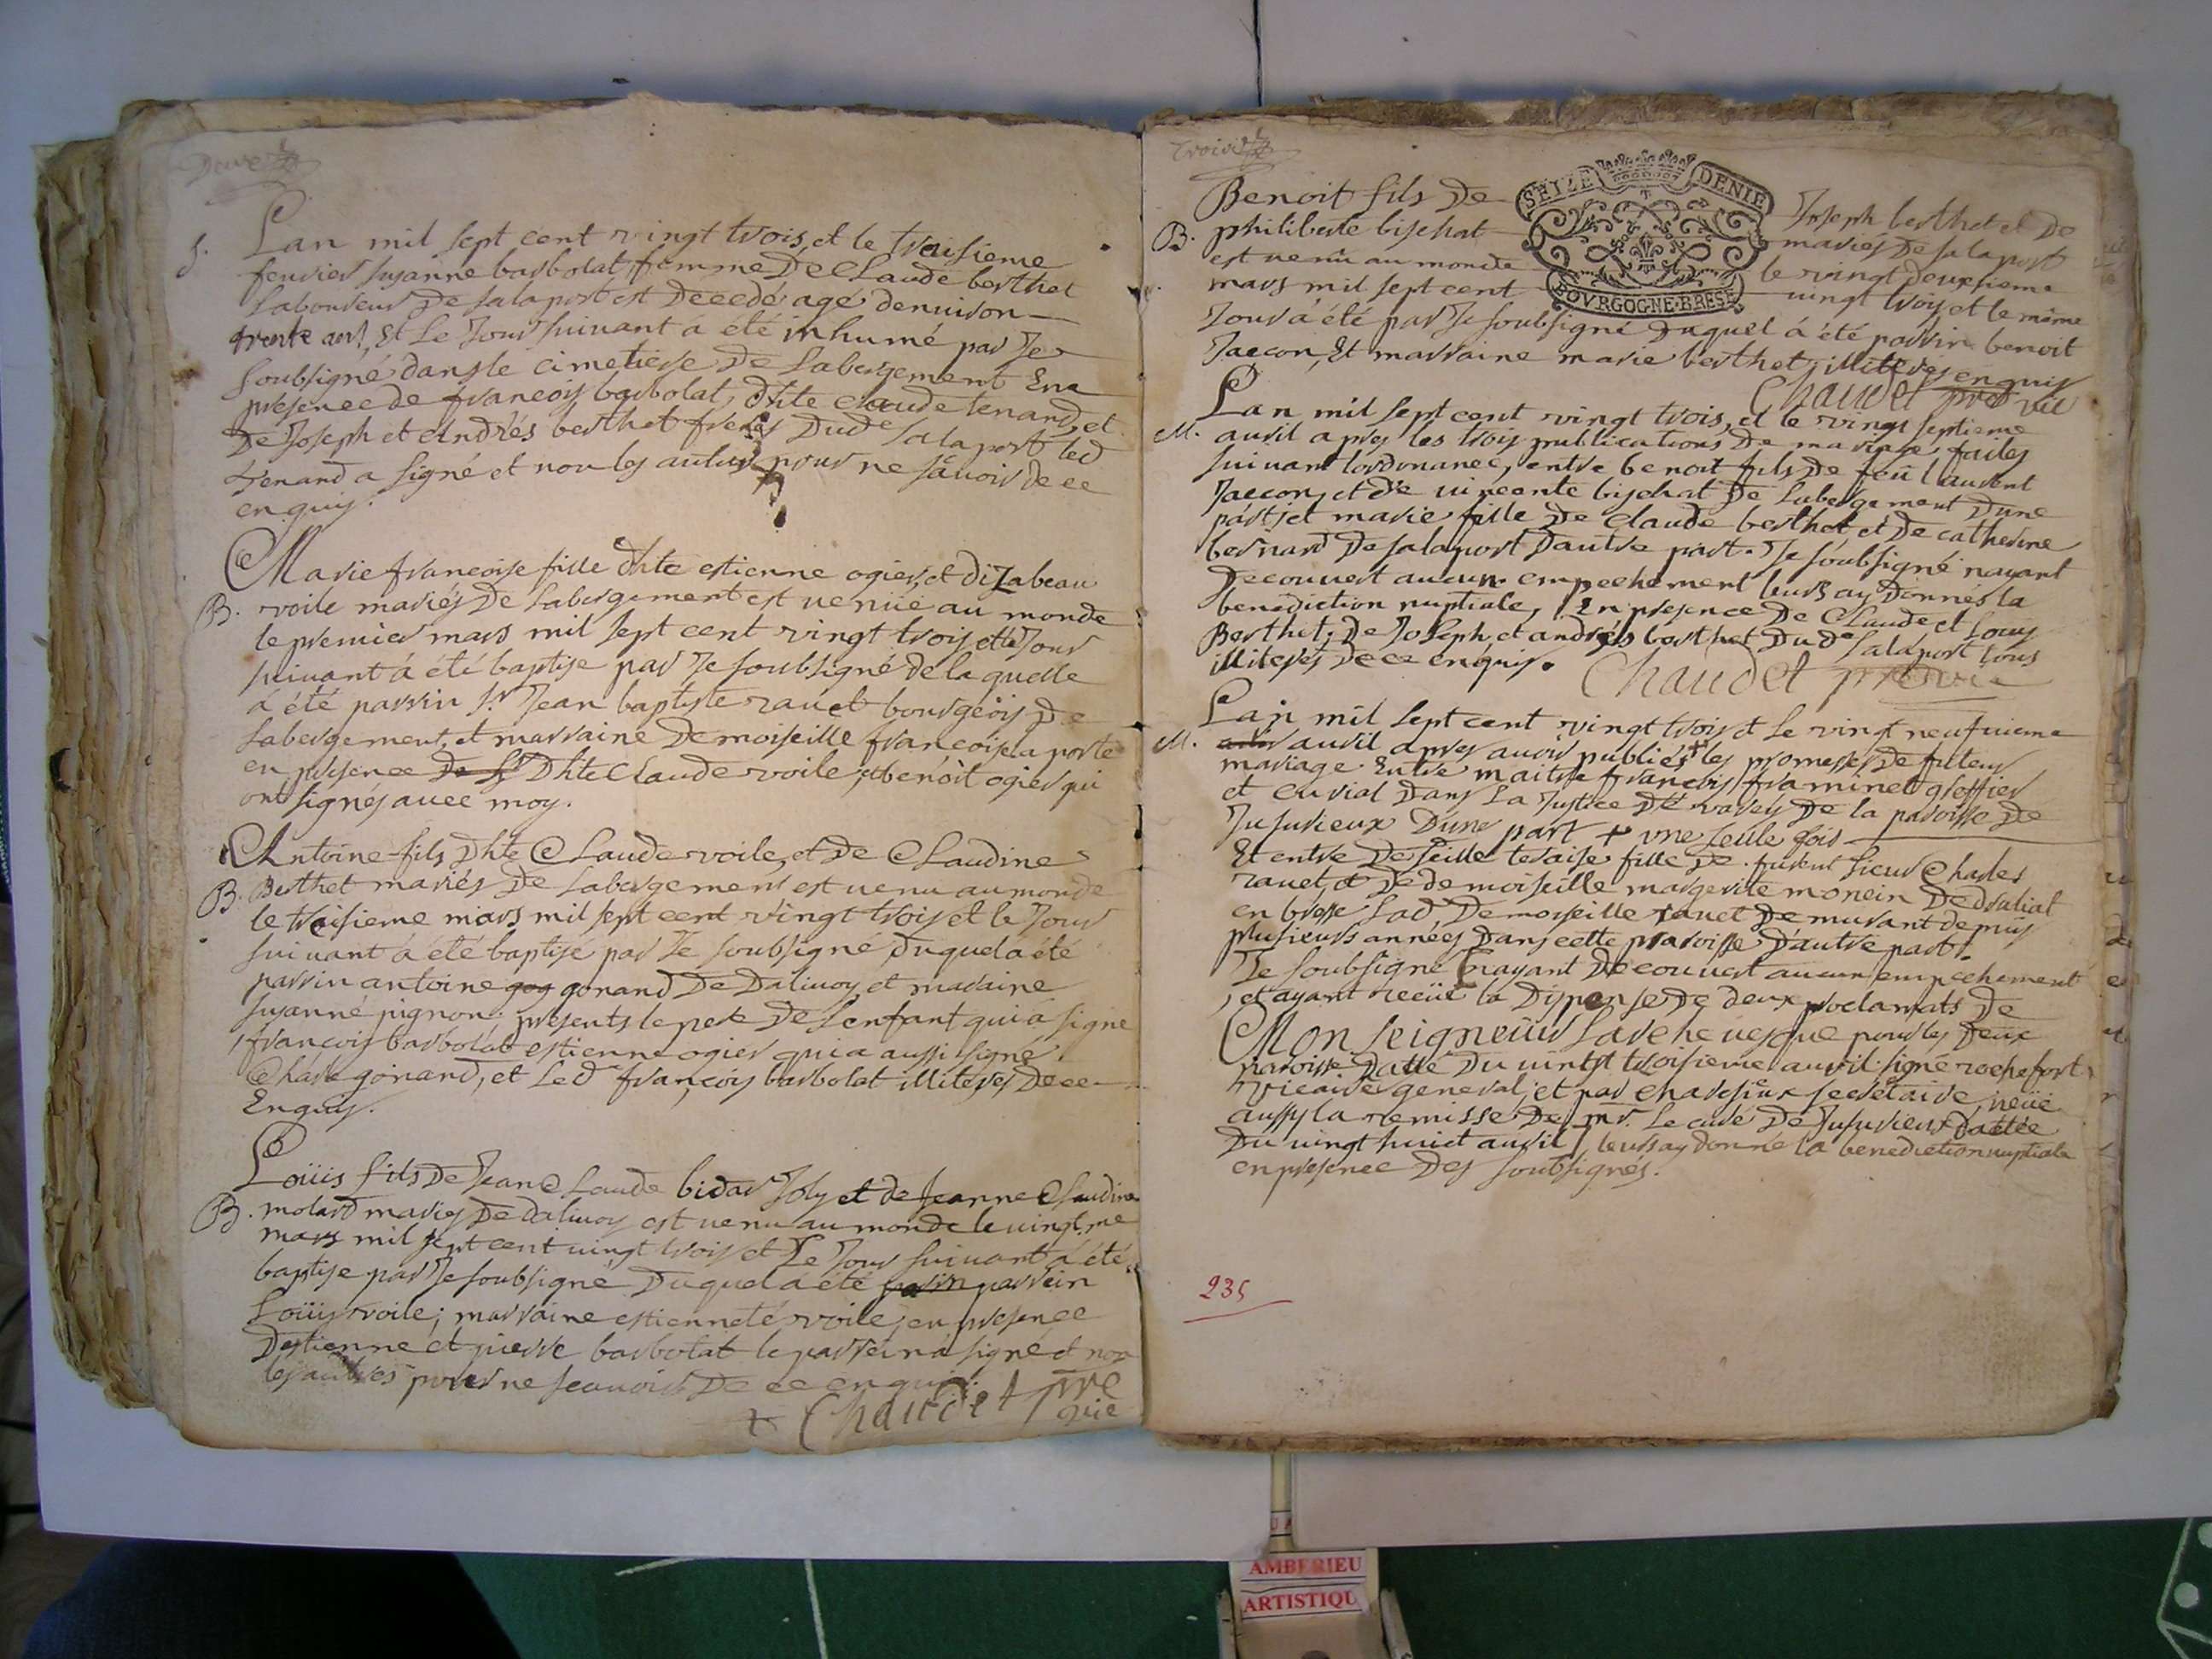 Deux
S. Lan mil sept cent vingt trois, et le troisieme
feuvier susanne barbolat, femme De Claude berthet
Laboureur De salaport est Decedé agé denuiron
trente ans, Et Le Jour suiuant á été inhumé par Je
soubsigné dans le cimetiere De Labergement En a
presence de francois barbolat, dhte claude tenand, et
De Joseph et Andrés berthet freres Dud salaport led
tenand a signé et non les autres pour ne sauoir de ce
enquis.
Marie francoise fille dhte estienne ogier, et dizabeau
B. voile mariés De Labergement est venüe au monde
le premier mars mil sept cent vingt trois et le Jour
suiuant á été baptise par Je soubsigné de la quelle
á été parrin sr Jean baptiste rauet bourgeois De
Labergement, et marraine Demoiseille francoise la porte
en presence De sr Dhte Claude voile, et benoit ogier qui
ont signés auec moy.
Antoine fils Dhte Claude voile, et De Claudine
B. Berthet mariés De Labergement est uenu au monde
le troisieme mars mil sept cent vingt trois et le Jour
suiuant á été baptisé par Je soubsigné duquel a été
parrin antoine gog gonand De Daliuoy et maraine
susanne pignon. presents le pere De Lenfant qui a signe
francois barbolat estienne ogier qui a aussi signé
gonand, et Led francois barbolat illiteres De ce
Enquis.
Loüis fils De Jean Claude bidar Joly et de Jeanne Claudine
B. molard mariés De daliuoy est uenu au monde le uingt me
mars mil sept cent uingt trois et Le Jour suiuant á été
baptise par Je soubsigné Duquel á été parrin parrein
Loüis voile; marraine estienneté voile, en presence
Destienne et pierre barbolat le parrein á signé et non
les autres pour ne scauoir De ce enquis.
Chaudet pre
vic
trois
Benoit fils De Joseph berthet et De
B. philiberte bischat mariés De salaport
est uenû au monde le vingt deuxsieme
mars mil sept cent uingt trois et le même
Jour á été par Je soubsigné Duquel á été parrin benoit
Jaccon, Et marraine marie berthet, illiteres enquis
Chaudet pre vic
SEIZE DENIE
BOVRGOGNE·BRESE
Lan mil sept cent vingt trois, et le vingt septieme
M. auril apres les trois publications De mariage, faites
suiuant lordonance, entre benoit fils De feü laurent
Jaccon, et De uincente bischat De Labergement Dune
part, et marie fille De Claude berthet et De catherine
bernard De salaport Dautre part. Je soubsigné nayant
Decouuert aucun empechement leurs ay Donnés la
benediction nuptiale, En presence De Claude et Louis
Berthet, De Joseph et andrés berthet Dud salaport tous
illiteres De ce enquis. Chaudet pre vic
Lan mil sept cent vingt trois et Le vingt neufuieme
M. auril apres auoir publiés + les promesses De futeur
mariage Entre maitre francois framinet greffier
et curial Dans La Justice De varey De la paroisse De
Jusurieux Dune part + vne seulle fois
Et entre Deseille teraise fille De fusent sieur Charles
rauet, et De demoiseille margerite monein De Druliat
en bresse Lad. Demoiseille rauet Demurant depuis
plusieurs années Dans cette paroisse D'autre part.
Je soubsigné nayant Decouuert aucun empechement
, et ayant receüe la Dispense De deux proclamats De
Mon seigneur Larcheuesque pour les deux
paroisse Datte Du uintgt troisieme auril signé rochefort
vicaire general, et par chaussieux secretaire, receüe
aussy la remisse De mr. Le curé De Jusurieux dattée
Du uingt huict auril, leurs ay donné la benediction nuptiale
en presence Des soubsignés.
235
AMBERIEU
ARTISTIQU